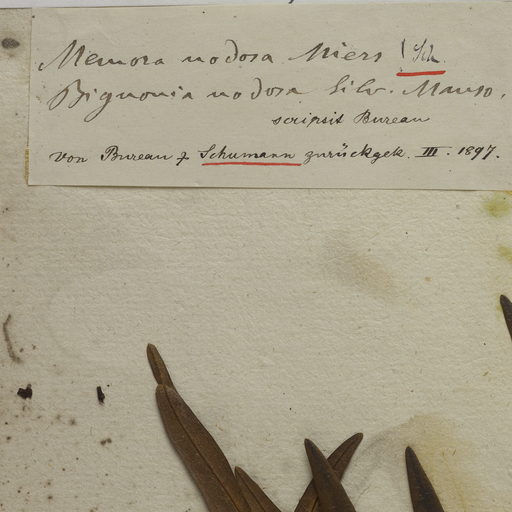 Memora nodosa Miers ! Sch.
Bignonia nodosa Silv. Manso.
scripsit Bureau
von Bureau & Schumann zurückgek. III. 1897.